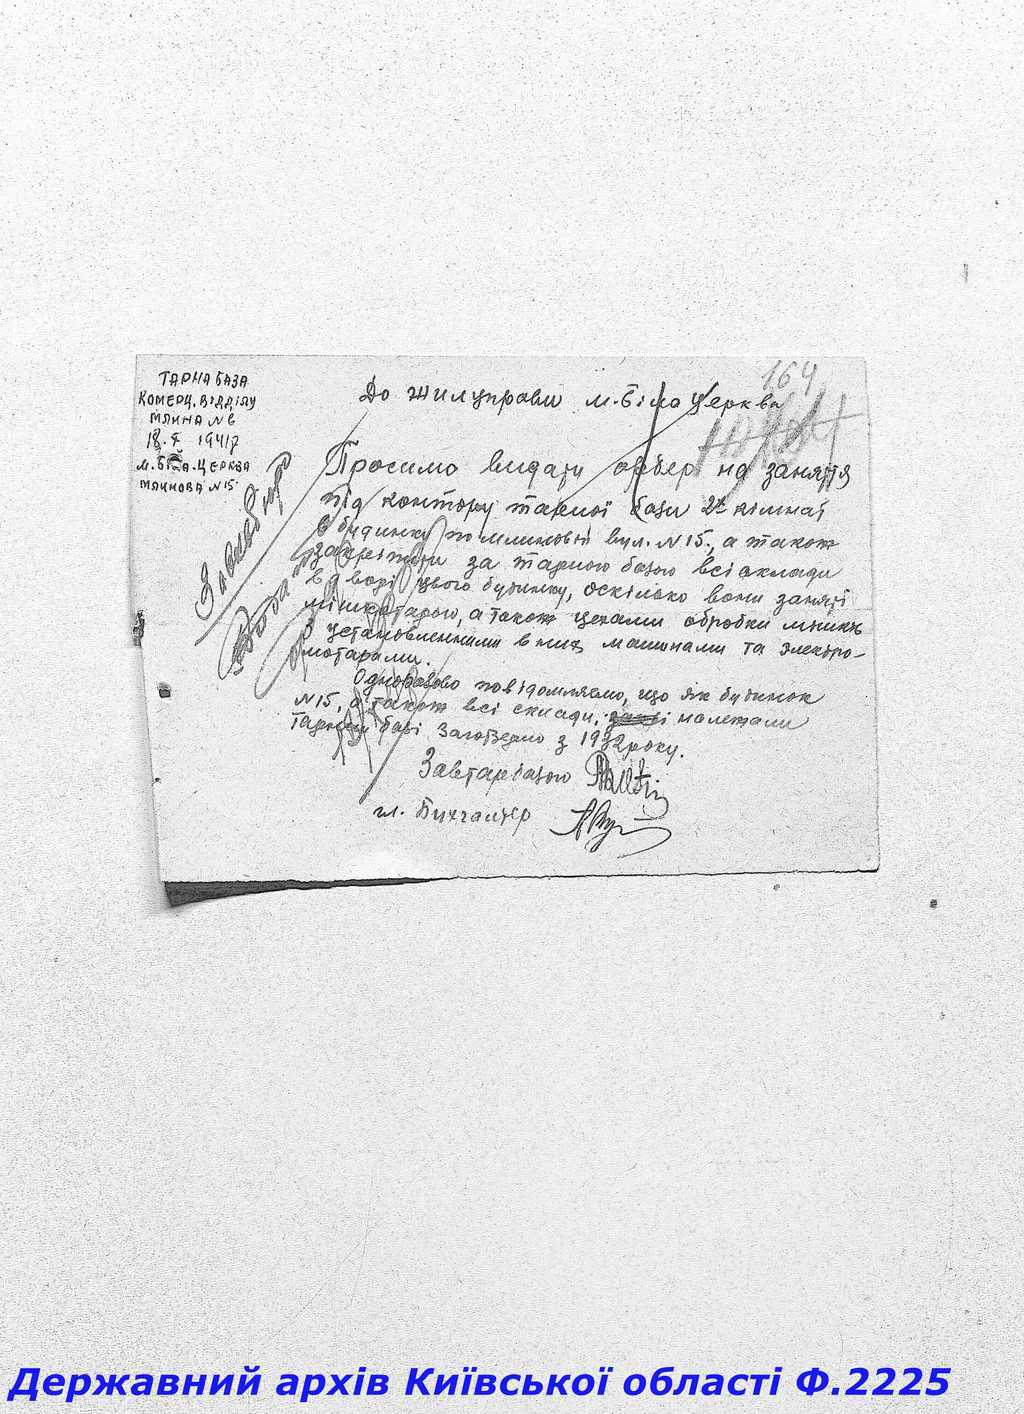 164
ТАРНА БАЗА
КОМЕРЦ. ВІДДІЛУ
МЛИНА №6
18. X 1941р
м. БІЛА-ЦЕРКВА
МЛИНОВА №15.
До Жилуправи м. Біла Церква
Просимо видати ордер на заняття
під контору тарної бази 2х кімнат
в будинку по млиновій вул. №15, а також
закріпити за тарною базою всі склади
в дворі цього будинку, оскілько вони заняті
мішкотарою, а також цехами обробки мішків
з установленними в них машинами та электро-
моторами.
Одноразово повідомляємо, що як будинок
№15, а також всі склади, належали
тарній базі Заготзерно з 1932 року.
Завтарбазою
гл. Бухгалтер
Державний архів Київської області Ф.2225